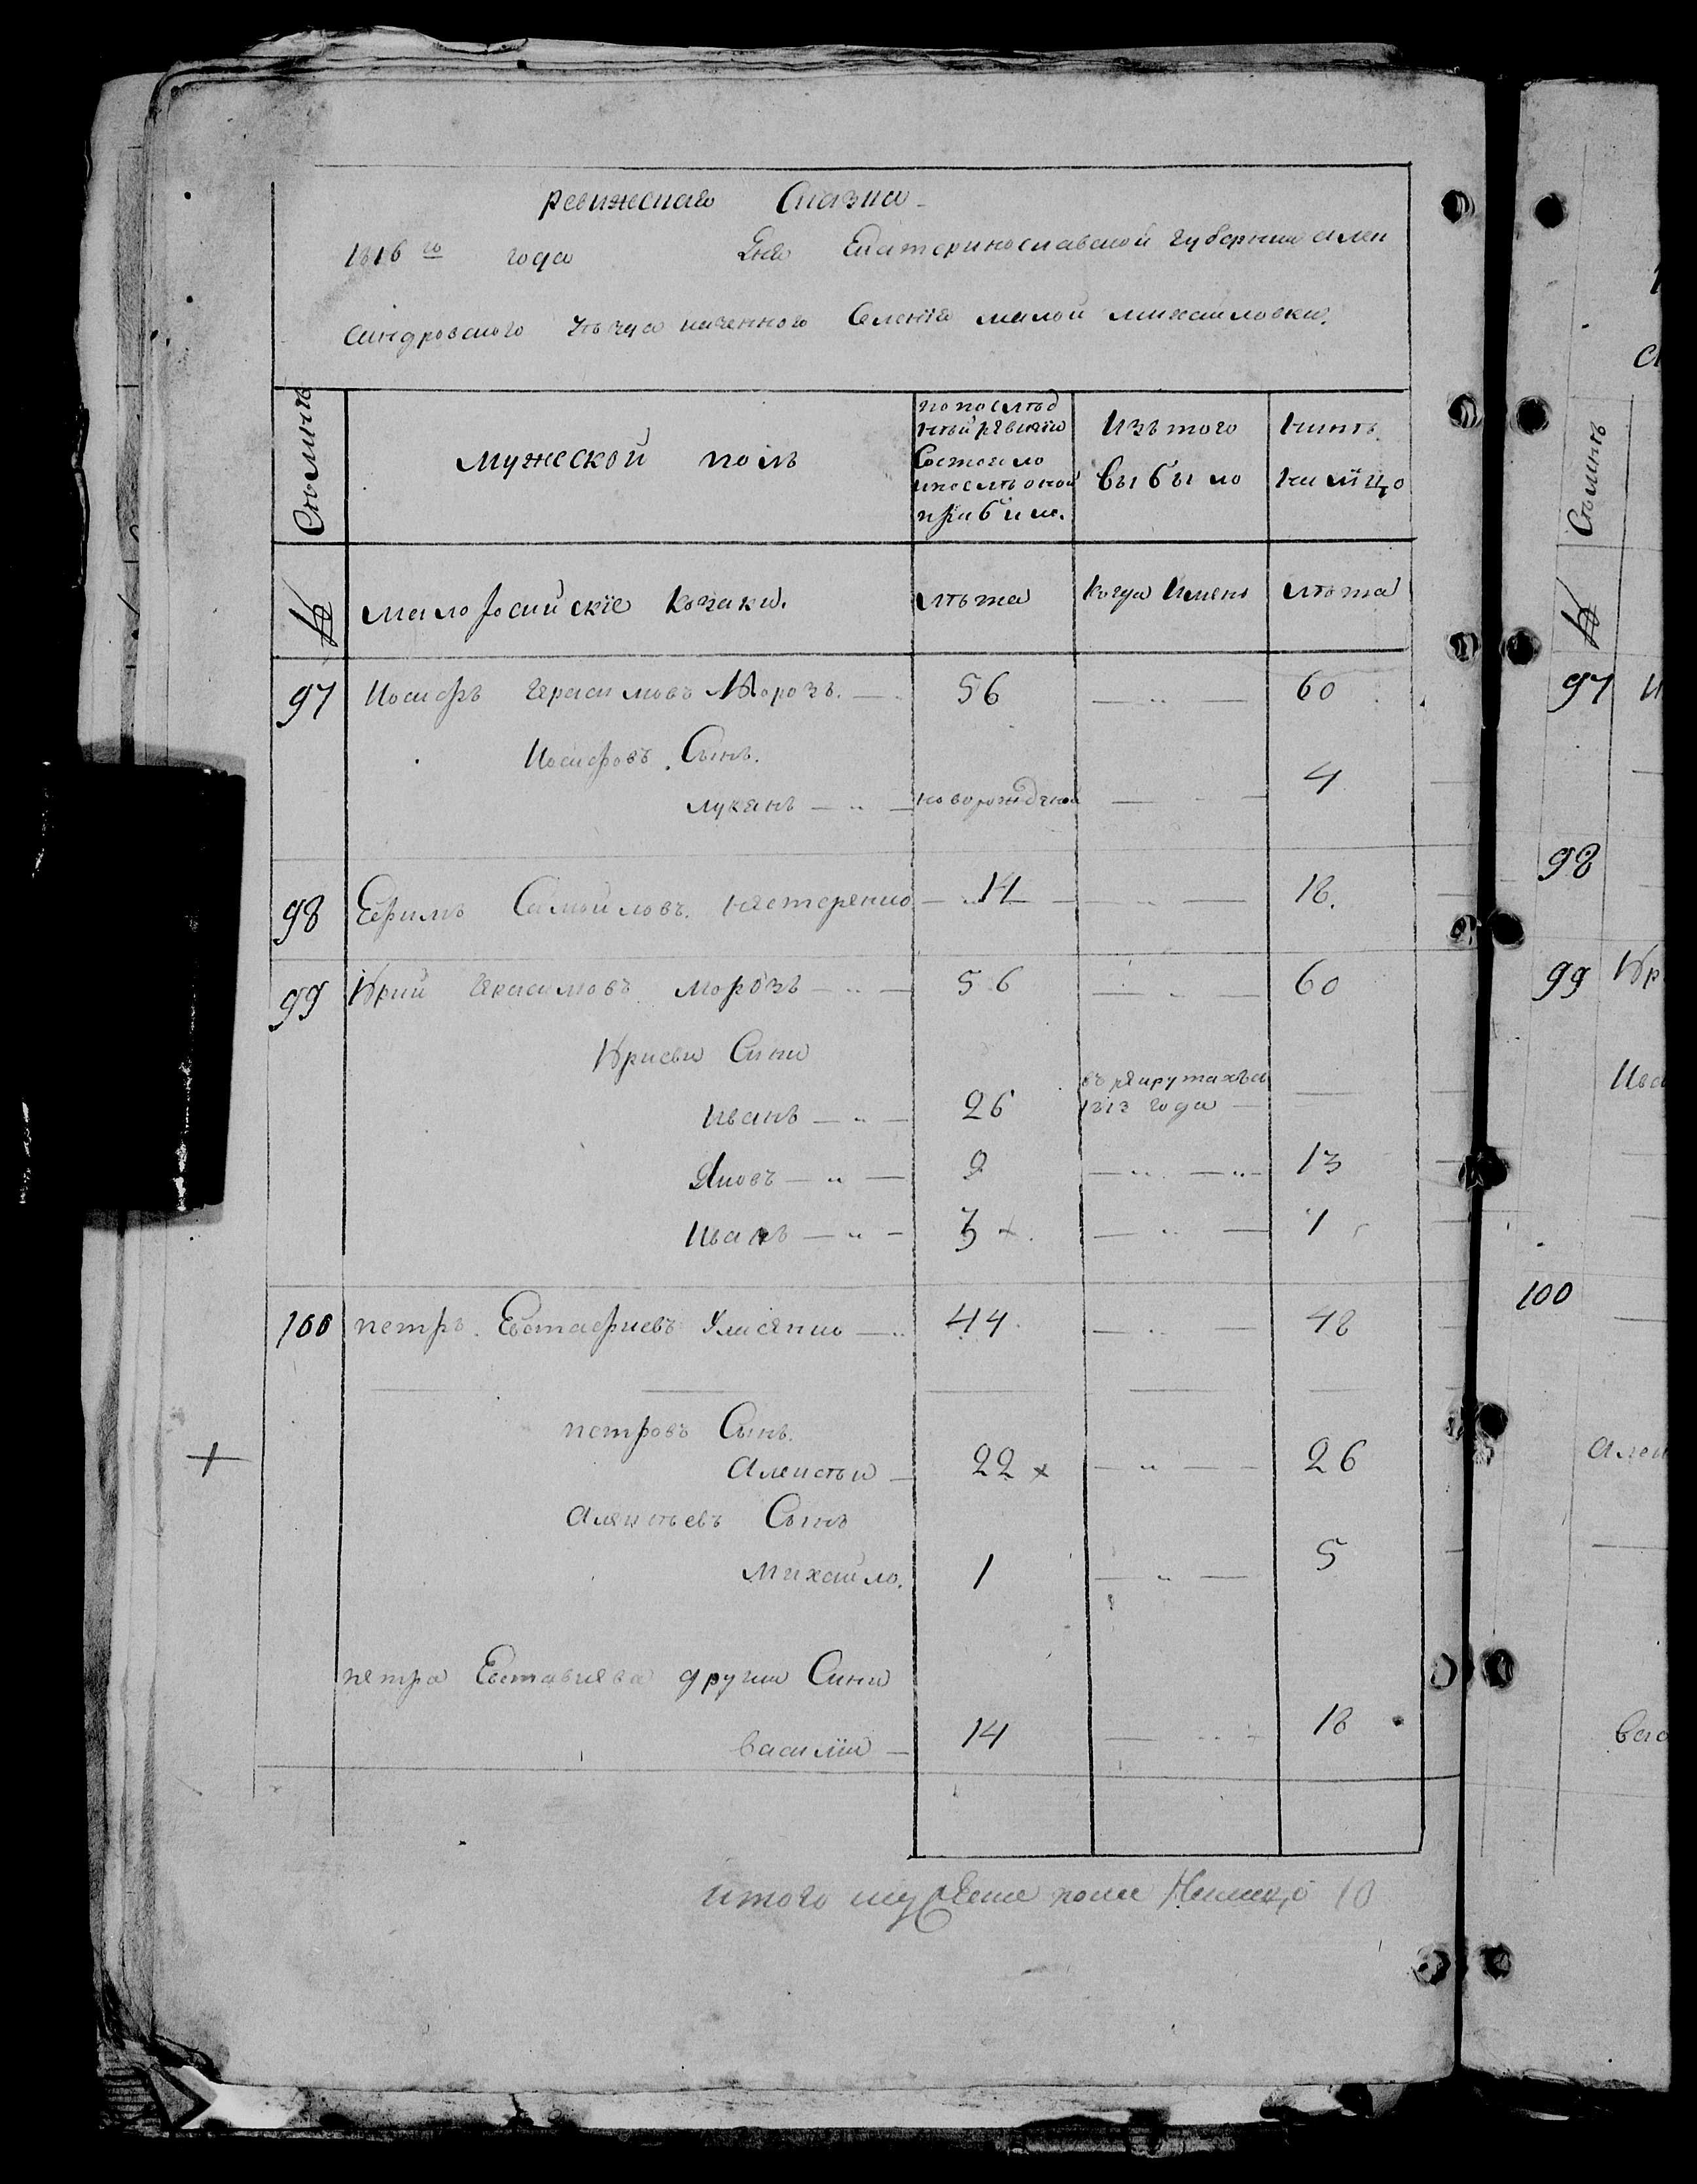 Ревижеская Сказка
1816 го года Дня Екатеринославской губернии Алек
сандровского уѣзда казенного Селенія малой михайловки.
Сѣмьи
Мужеской полъ
по послѣд
нѣй ревизіи
Состояло
и послѣ оной
прибыло.
Изъ того
выбыло
нынѣ
на лицо
№
малоросійскіе козаки.
лѣта
Когда имено
лѣта
97 Иосифъ Герасимовъ Морозъ. 56 60
Иосифовъ Сынъ.
лукянъ новорожденой 4
98 Ефимъ Самойловъ. нестеренко 14 18.
99 Юрий Герасимовъ морозъ 56 60
Юриеви Сини
Иванъ 26 въ рекрутахъ съ 1813 года
Яковъ 9 13
Иванъ 3 x. 7
100 петръ. Евстафиевъ 44 48
петровъ Сынъ.
+ Алексѣи 22 x 26
Алексѣевъ Сынъ
Михайло. 1 5
петра Евставиева другии Сини
василіи 14 18
итого мужеска пола Налицо 10
Сѣмьи
№
97 И
98
99 Юр
Ива
100
Алек
Вас